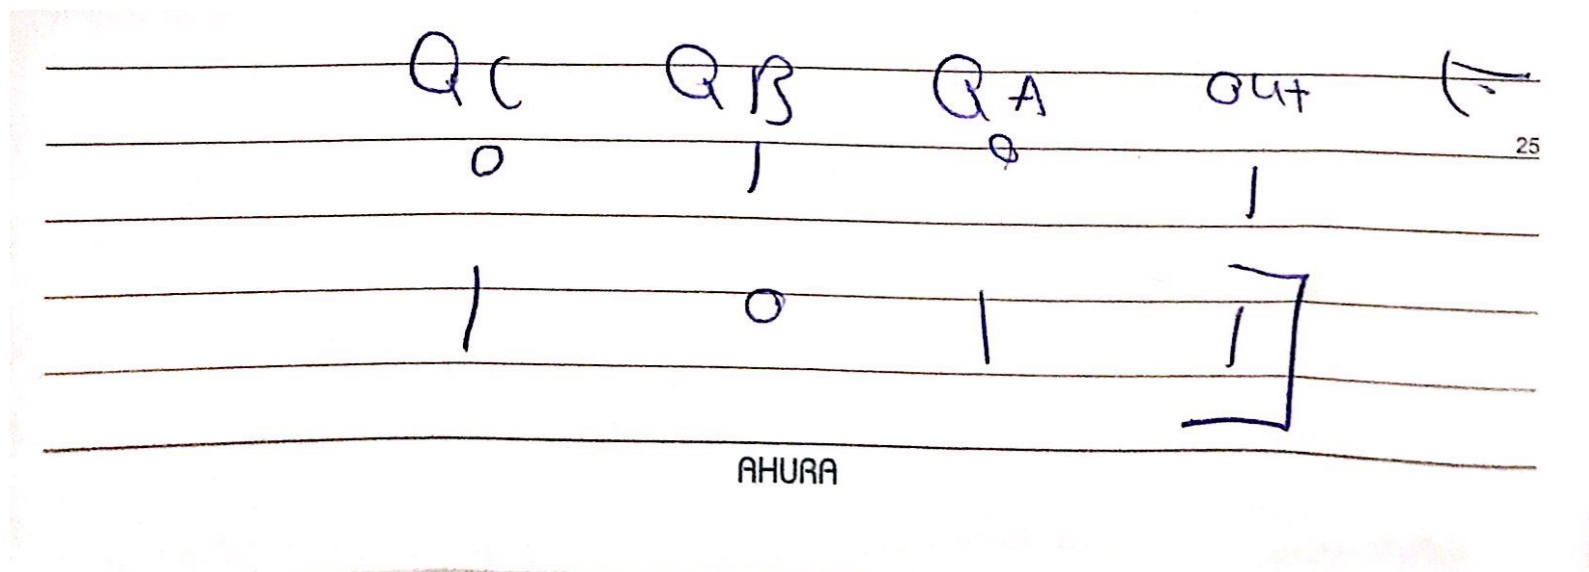 QC QB QA out
25
0 1 0 1
1 0 1 1
AHURA